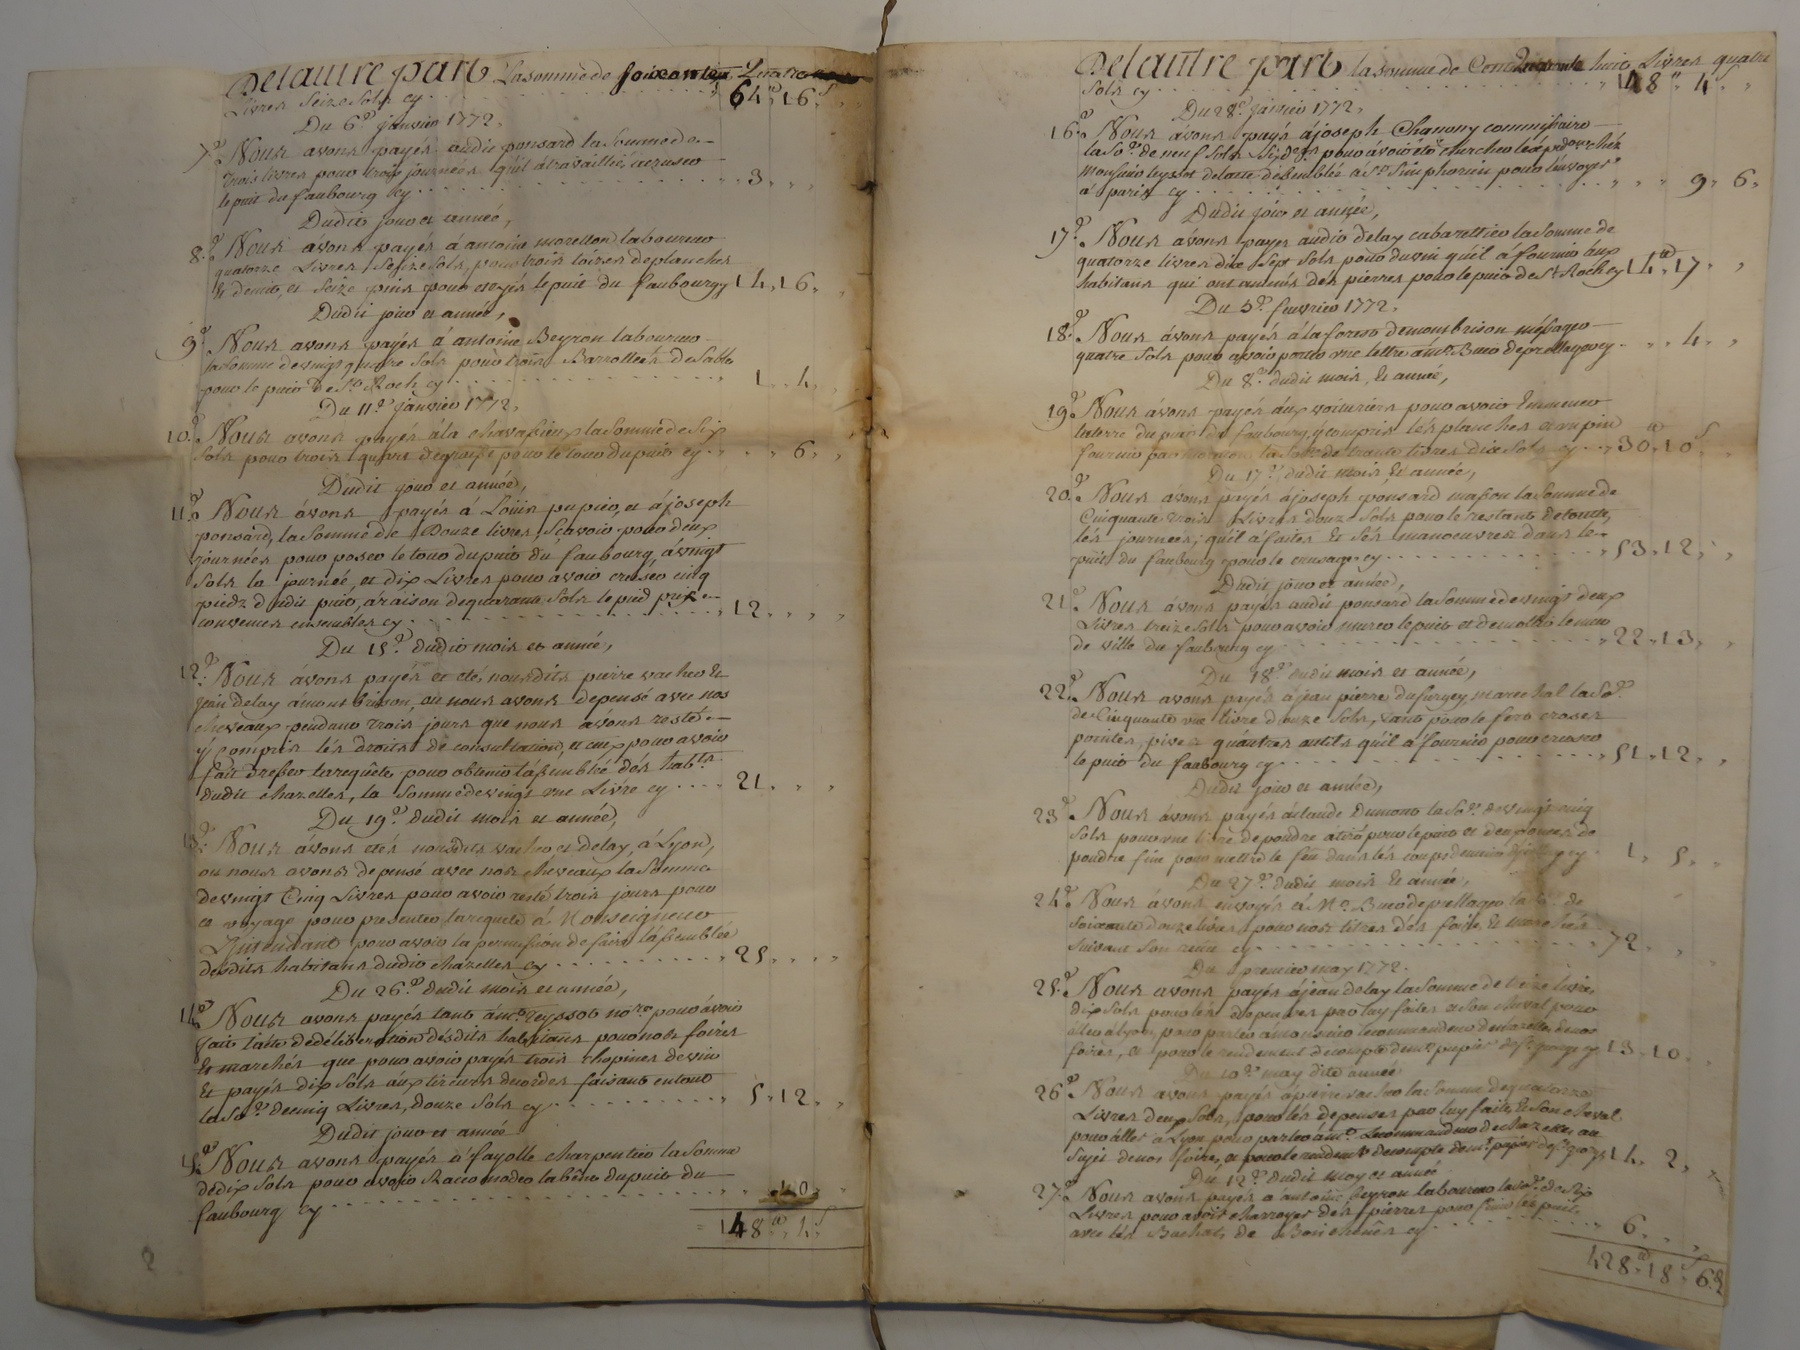 De lautre part La somme de soixante Quatre
Livres Seize Sols cy . . . 64.tt 16.s
Du 6.e janvier 1772,
7.e Nous avons payés audit ponsard la Somme de
trois livres pour trois journées qu'il à travaillié à creuser
le puit du faubourg cy . . . 3.
Dudit jour et année,
8.e Nous avons payés à antoine morellon laboureur
quatorze Livres Seize Sols, pour trois toises de planches
et demie, et Seize pour etayér le puit du faubourg cy 14. 16.
Dudit jour et année,
9.e Nous avons payés à antoine Beyron laboureur
la Somme de vingt quatre Sols pour trois Barrollées de Sable
pour le puit de St. Roch cy . . . 1. 4.
Du 11.e janvier 1772,
10.e Nous avons payés à la chavassieux la Somme de Six
Sols pour trois quart de pour le tour du puit cy . . 6.
Dudit jour et année,
11.e Nous avons payés à Louis pupier, et à joseph
ponsard, la Somme de Douze livres, Sçavoir pour deux
journées pour poser le tour du puit du faubourg, à vingt
Sols la journée, et dix Livres pour avoir creusér cinq
piedz dudit puit, à raison de quarante Sols le pied prix
convenus ensembles cy . . . 12.
Du 15.e dudit mois et année,
12.e Nous avons payés et eté, nousdits pierre vacher et
jean delay à montbrison, ou nous avons depensé avec nos
chevaux pendant trois jours que nous avons resté
y compris lés droits de consultation, et eux pour avoir
fait dresser la requête pour obtenir l'assemblée dés hab.ts
dudit chazelles, la Somme de vingt une Livre cy . . . 21.
Du 19.e dudit mois et année,
13.e Nous avons etés nousdits vacher et delay, à Lyon,
ou nous avons depensé avec nos chevaux la Somme
de vingt Cinq Livres pour avoir resté trois jours pour
ce voyage pour presenter la requete à Monseigneur
L'Intendant pour avoir la permission de faire l'assemblée
desdits habitans dudit chazelles cy . . . 25.
Du 26.e dudit mois et année,
14.e Nous avons payés tant à m.e Teyssot no.re pour avoir
fait l'acte de délibération désdits habitans pour nos foires
Et marchés que pour avoir payés trois chopines de vin
Et payés dix Sols aux tireurs de cordes faisant en tout
la So.e de cinq Livres, douze Sols cy . . . 5. 12.
Dudit jour et année
15.e Nous avons payés à fayolle charpentier la Somme
de dix Sols pour avoir Racomoder la béne du puit du
faubourg cy . . . 10.
148.tt 4.s
De lautre part la somme de Cent quarante huit Livres quatre
Sols cy . . . 148.tt 4.
Du 28.e janvier 1772,
16.e Nous avons payés à joseph Chanony commissaire
la So.e de neuf Sols Six de.rs pour avoir été chercher
Monsieur teyssot de l'acte d'assemblée à St. Simphorien pour l'envoyer
à paris cy . . . 9. 6.
Dudit jour et année,
17.e Nous avons payés audit delay cabarettier la Somme de
quatorze livres dix Sept Sols pour du vin qu'il à fournir aux
habitans qui ont aménés dés pierres pour le puit de St. Roch cy 14.tt 17.
Du 5.e fevrier 1772,
18.e Nous avons payés à la forest de montbrison méssager
quatre Sols pour avoir porter une lettre à m.e Buer de prellager cy . . 4.
Du 8.e dudit mois, Et année,
19.e Nous avons payés aux voituriers pour avoir Emmener
la terre du puit du faubourg, y compris lés planches
fournir par la Som. de trante livres dix Sols cy . . 30.tt 10.s
Du 17.e dudit mois, Et année,
20.e Nous avons payés à joseph ponsard masson la Somme de
Cinquante trois Livres douze Sols pour le restant de toutes
lés journées, qu'il à faites Et Sés manoeuvres dans le
puit du faubourg pour le creusage cy . . . 53. 12.
Dudit jour et année,
21.e Nous avons payés audit ponsard la Somme de vingt deux
Livres treize Sols pour avoir murer le puit et demolir le mur
de ville du faubourg cy . . . 22. 13.
Du 18.e dudit mois et année,
22.e Nous avons payés à jean pierre marechal la So.e
de Cinquante une livre douze Sols, tant pour le fert
pointes, qu'autres outils qu'il à fournir pour creuser
le puit du faubourg cy . . . 51. 12.
Dudit jour et année,
23.e Nous avons payés à claude Dumont la So.e de vingt cinq
Sols pour une livre de poudre pour le puit et deux onces de
poudre fine pour mettre le feu dans lés coups de mine cy . 1. 5.
Du 27.e dudit mois Et année,
24.e Nous avons envoyés à M.e Buer de prellager la So.e de
soixante douze livres pour nos titres dés foires Et marchés
Suivant Son reçu cy . . . 72.
Du premier may 1772.
25.e Nous avons payés à jean delay la Somme de treize livres
dix Sols pour lés depenses par luy faites et Son cheval pour
aller à Lyon pour parler à monsieur de chazelles de nos
foires, et pour le rendement de compte de m.e pupier de St. george cy 13. 10.
Du 10.e may dite année
26.e Nous avons payés à pierre vacher la Somme de quatorze
Livres deux Sols, pour lés depenses par luy faites, et Son cheval
pour aller à Lyon pour parler à m.e de chazelles au
Sujet de nos foires, et pour le rendement de compte de m.e pupier de St. george 14. 2.
Du 12.e dudit may et année
27.e Nous avons payés a antoine beyron laboureur la So.e de Six
Livres pour avoir charroyer dés pierres pour finir lés puits
avec lés Bachats de cy . . . 6.
428.tt 18.s 6.d